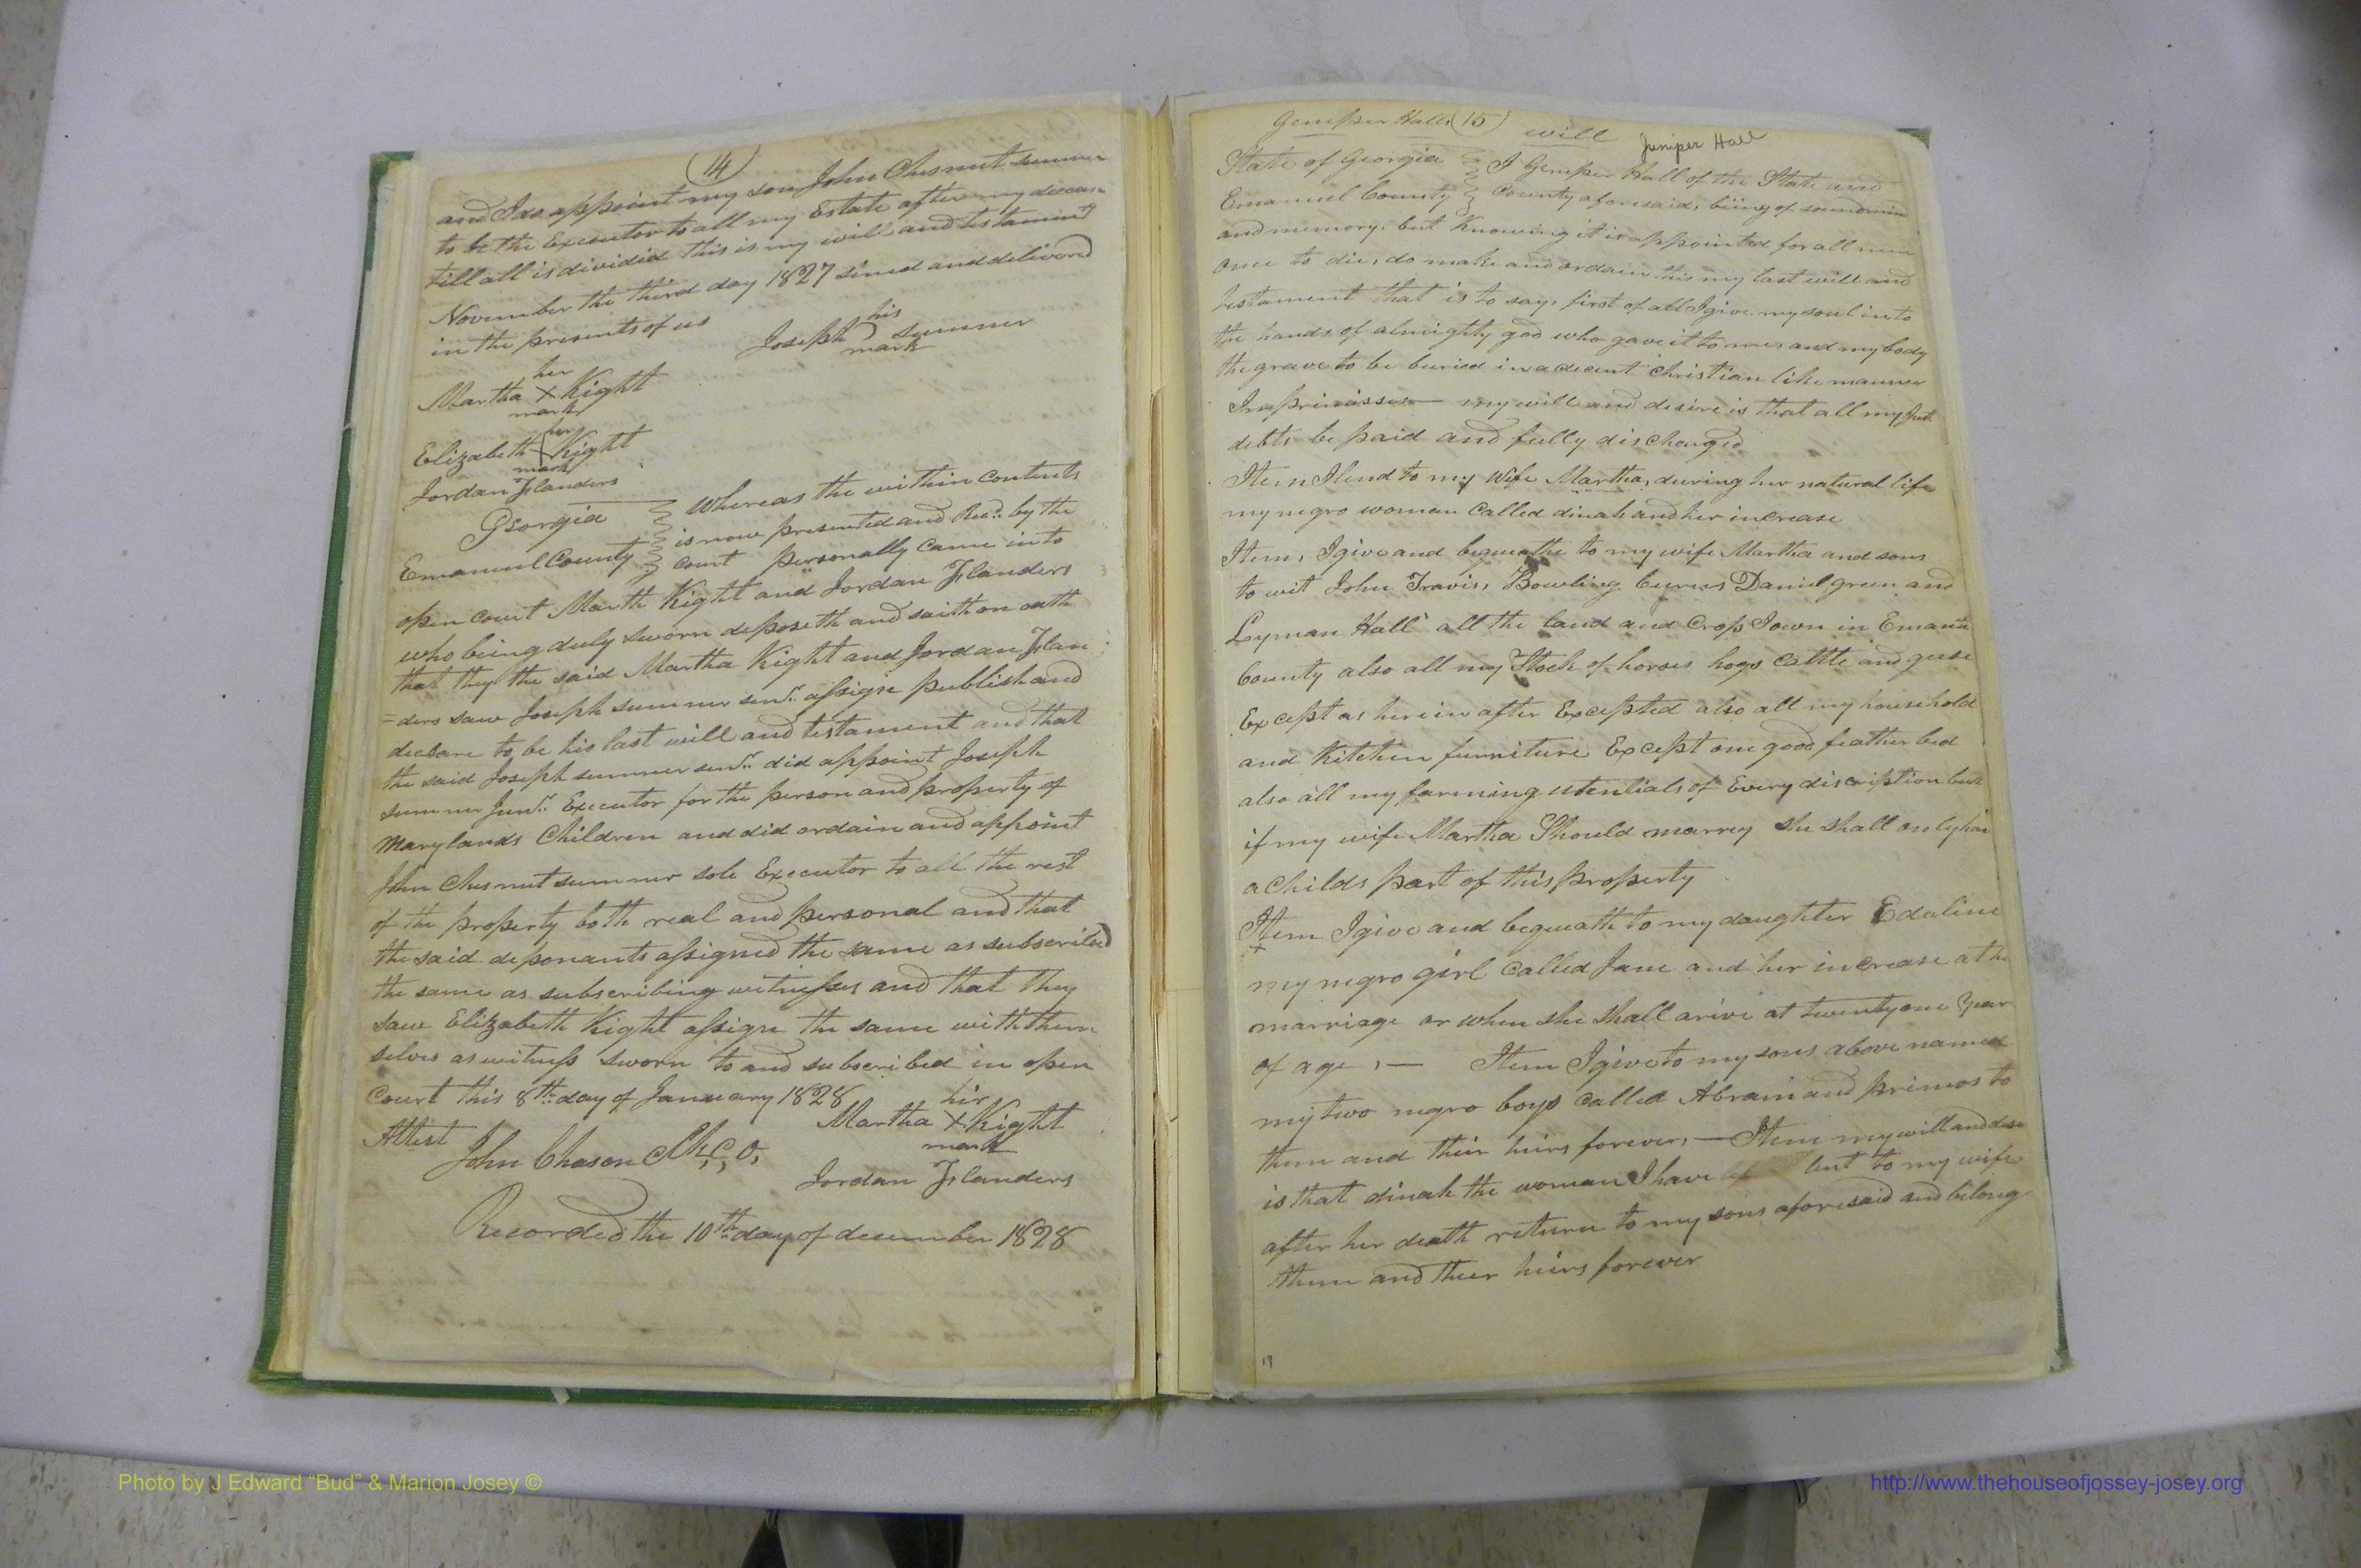 (14)
and I do appoint my son John Chesnut summer
to be the Executor to all my Estate after my decease
till all is divided this is my will and testament
November the third day 1827 sined and deliverd
in the presents of us
his
Joseph ) summer
mark
her
Martha X Kight
mark
her
Elizabeth Kight
mark
Jordan Flanders
Georgia
Whereas the within Contents
is now presented and Recd. by the
Emanuel County Court personally Came into
open court Marth Kight and Jordan Flanders
who being duly sworn deposeth and saith on oath
that they the said Martha Kight and Jordan Flan
=ders saw Joseph summer senr. assign publish and
declare to be his last will and testament and that
the said Joseph summer senr. did appoint Joseph
summer Junr. Executor for the person and property of
Marylands Children and did ordain and appoint
John Chesnut summer sole Executor to all the rest
of the property both real and personal and that
the said deponants assigned the same as subscribed
the same as subscribing witnesses and that they
saw Elizabeth Kight assign the same with them
selves as witness sworn to and subscribed in open
Court this 8th day of January 1828
hir
Martha X Kight
mark
Attest
John Chason C,C,O,
Jordan Flanders
Recorded the 10th day of desember 1828
Gemper Halls (15) will
Juniper Hall
State of Georgia
Emanuel County
I Gemper Hall of the State and
County aforesaid, being of sound min
and memory. but Knowing it is appointed for all men
once to die, do make and ordain this my last will and
testament that is to say, first of all I give my soul into
the hands of almighty god who gave it to me and my body
the grave to be buried in a decent Christian like manner
Imprimisses — my will and desire is that all my Just
debts be paid and fully discharged
Item I lend to my Wife Martha, during her natural life
my negro woman Called dinah and her increase
Item, I give and bequeathe to my wife Martha and sons
to wit John Travis, Bowling burns Daniel green and
Lyman Hall all the land and Crop I own in Emanu
County also all my Stock of horses hogs Cattle and geese
Except as herein after Excepted also all my household
and Kitchen furniture Except one good feather bed
also all my farming utentials of Every discription but
if my wife Martha Should marrey she shall only hav
a Childs part of this property
Item I give and bequeath to my daughter Edaline
my negro girl Called Jane and her increase at he
marriage or when she shall arive at twenty one Year
of age, — Item I give to my sons above named
my two negro boys Called Abram and primos to
them and their heirs forever, — Item my will and desi
is that dinah the woman I have lent to my wife
after her death return to my sons aforesaid and belong
them and their heirs forever
19
Photo by J Edward “Bud” & Marion Josey ©
http://www.thehouseofjossey-josey.org